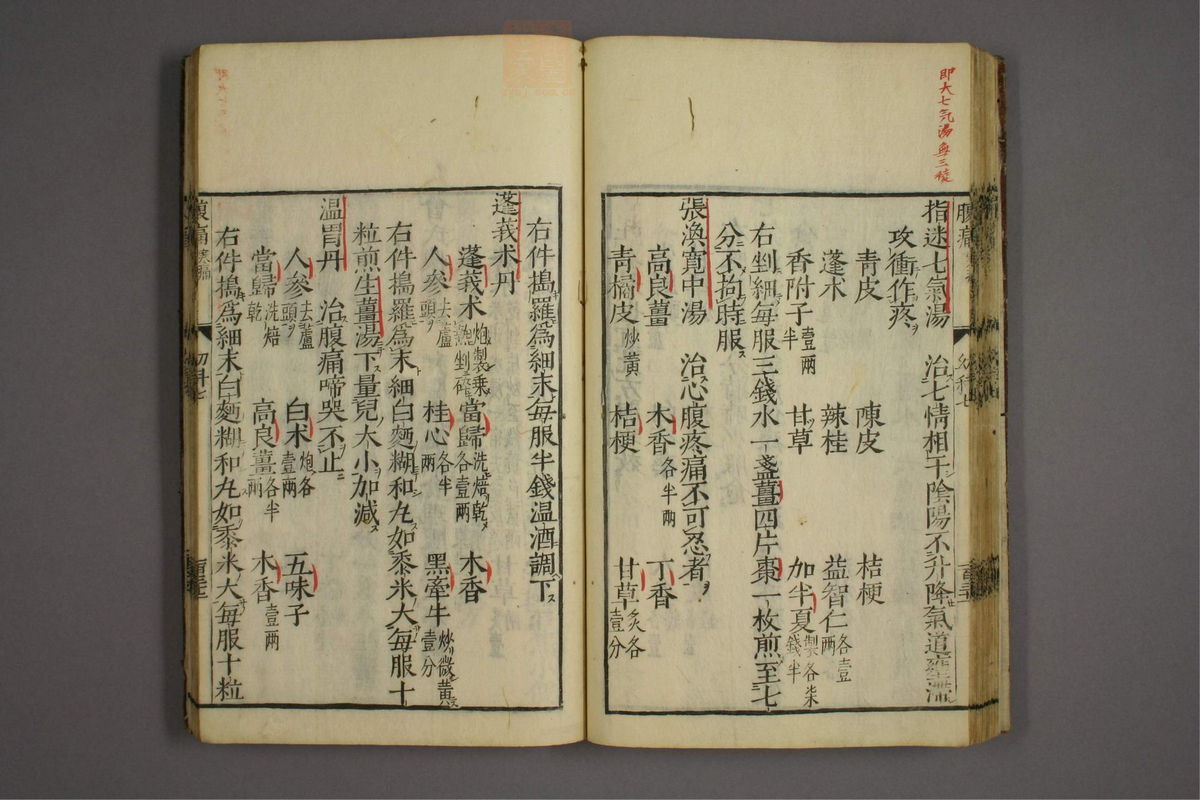 即大七気湯無三稜
指迷七氣湯 治七情相干陰陽不升降氣道壅滯
攻衝作疼
青皮 陳皮 桔梗
蓬朮 辣桂 益智仁各壹兩
香附子壹兩半 甘草 加半夏製各柒錢半
右剉細每服三錢水一盞薑四片棗一枚煎至七
分不拘時服
張渙寬中湯 治心腹疼痛不可忍者
高良薑 木香各半兩 丁香
青橘皮炒黃 桔梗 甘草炙各壹分
右件搗羅為細末每服半錢温酒調下
蓬莪术丹
蓬莪术炮製乘熱剉碎 當歸洗焙乾各壹兩 木香
人參去蘆頭 桂心各半兩 黑牽牛炒微黃壹分
右件搗羅為末細白麪糊和丸如黍米大每服十
粒煎生薑湯下量兒大小加減
温胃丹 治腹痛啼哭不止
人參去蘆頭 白术炮各壹兩 五味子
當歸洗焙乾 高良薑各半兩 木香壹兩
右件搗為細末白麪糊和丸如黍米大每服十粒
腹痛